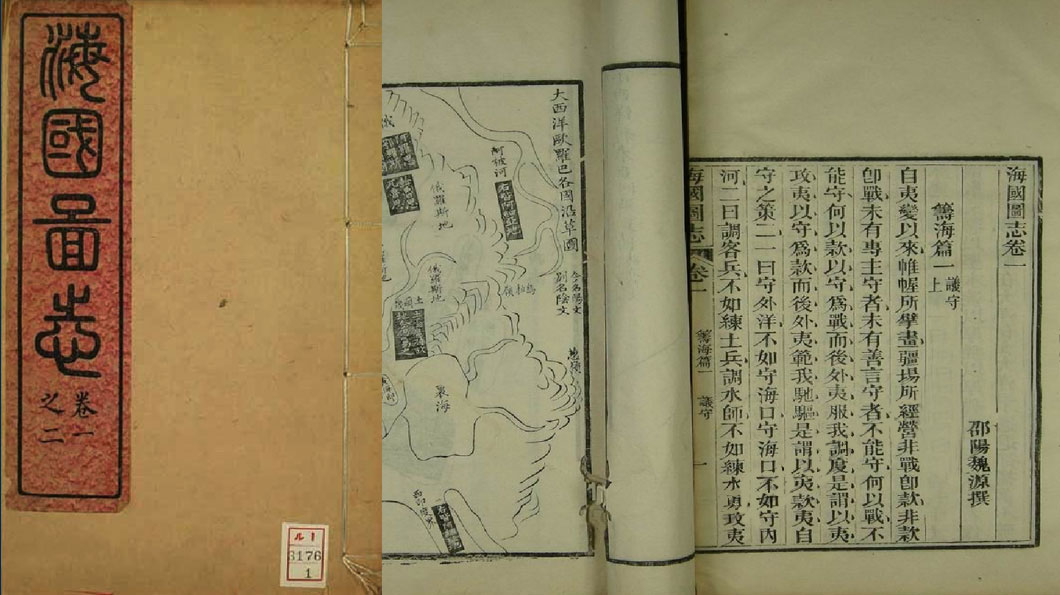 海國啚志
卷一
之二
ル1
3176
1
大西洋歐羅巴各國沿革圖
今名陽文
別名陰文
阿被河
俄羅斯地
俄羅斯地
裏海
海國圖志卷一
邵陽魏源撰
籌海篇一 議守上
自夷變以來帷幄所擘畫疆場所經營非戰卽款非款
卽戰未有專主守者未有善言守者不能守何以戰不
能守何以款以守爲戰而後外夷服我調度是謂以夷
攻夷以守爲款而後外夷範我馳驅是謂以夷款夷自
守之策二一曰守外洋不如守海口守海口不如守內
河二曰調客兵不如練土兵調水師不如練水勇攻夷
海國圖志 卷一 籌海篇一 議守 一